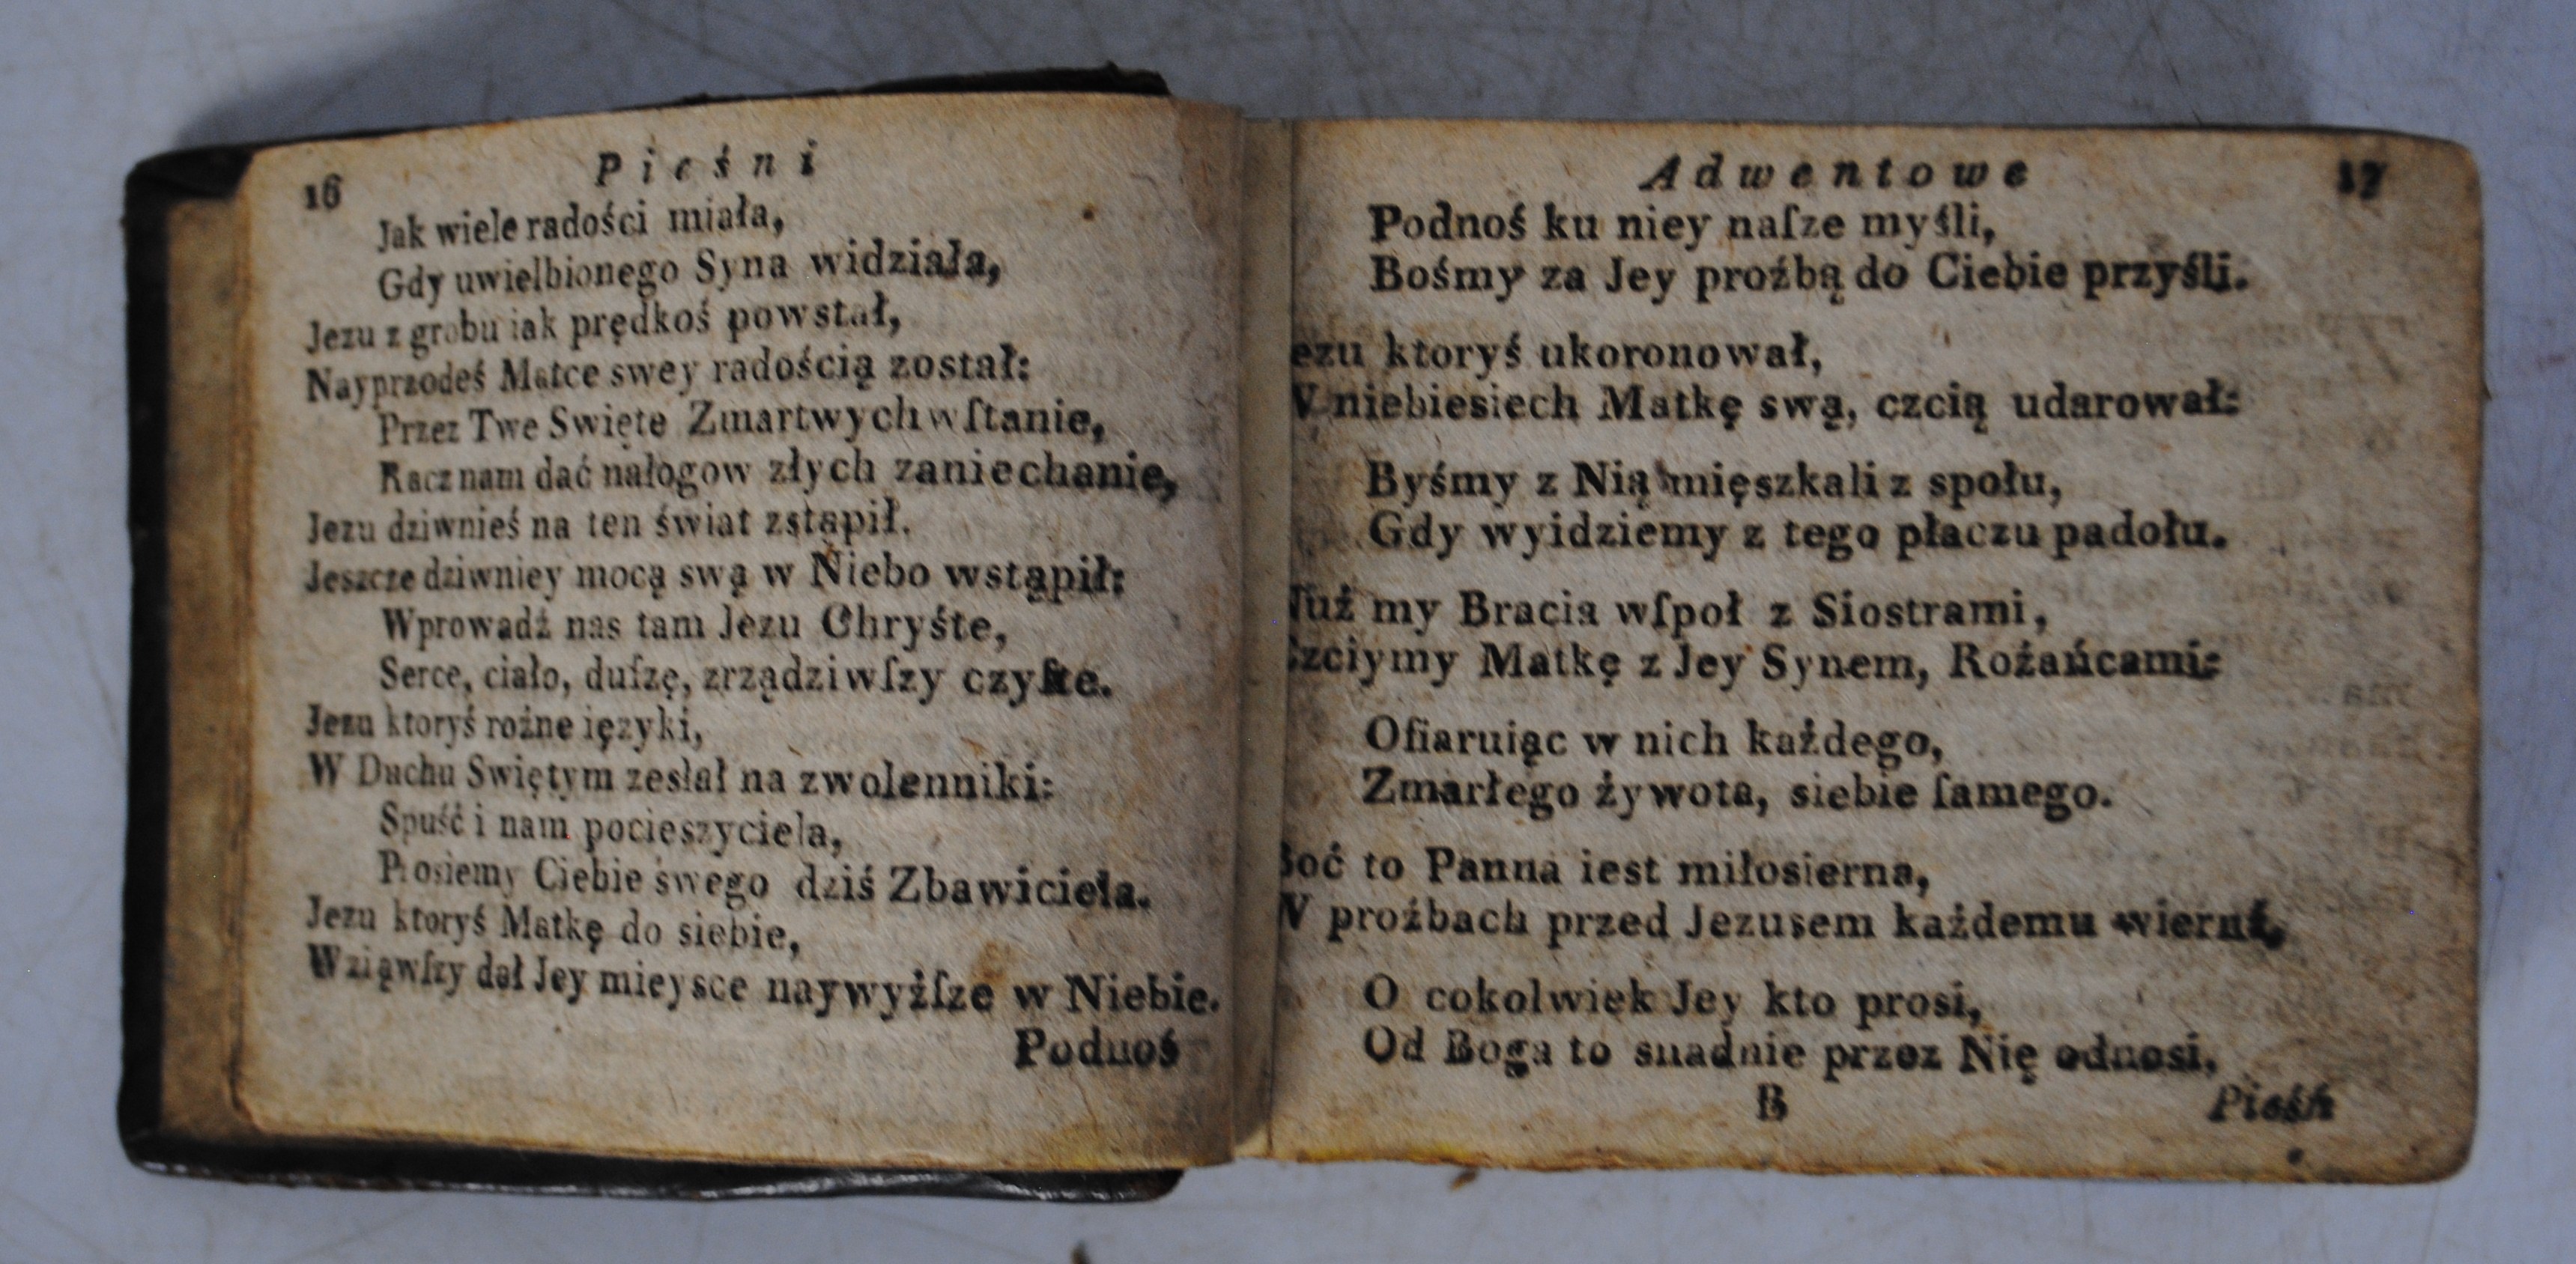 16 Pieśni
Jak wiele radości miała,
Gdy uwielbionego Syna widziała,
Jezu z grobu iak prędkoś powstał,
Nayprzodeś Matce swey radością został:
Przez Twe Swięte Zmartwychwſtanie,
Racz nam dać nałogow złych zaniechanie,
Jezu dziwnieś na ten świat zstąpił.
Jeszcze dziwniey mocą swą w Niebo wstąpił:
Wprowadź nas tam Jezu Chryśte,
Serce, ciało, duſzę, zrządziwſzy czyſte.
Jezu ktoryś rożne ięzyki,
W Duchu Swiętym zesłał na zwolenniki:
Spuść i nam pocieszyciela,
Prosiemy Ciebie swego dziś Zbawiciela.
Jezu ktoryś Matkę do siebie,
Wziąwſzy dał Jey mieysce naywyżſze w Niebie.
Podnoś
Adwentowe 17
Podnoś ku niey naſze myśli,
Bośmy za Jey proźbą do Ciebie przyśli.
ezu ktoryś ukoronował,
W niebiesiech Matkę swą, czcią udarował:
Byśmy z Nią mięszkali z społu,
Gdy wyidziemy z tego płaczu padołu.
Nuż my Bracia wſpoł z Siostrami,
Czciymy Matkę z Jey Synem, Rożańcami:
Ofiaruiąc w nich każdego,
Zmarłego żywota, siebie ſamego.
Boć to Panna iest miłosierna,
W proźbach przed Jezusem każdemu wierna,
O cokolwiek Jey kto prosi,
Od Boga to snadnie przez Nię odnosi.
B Pieśń